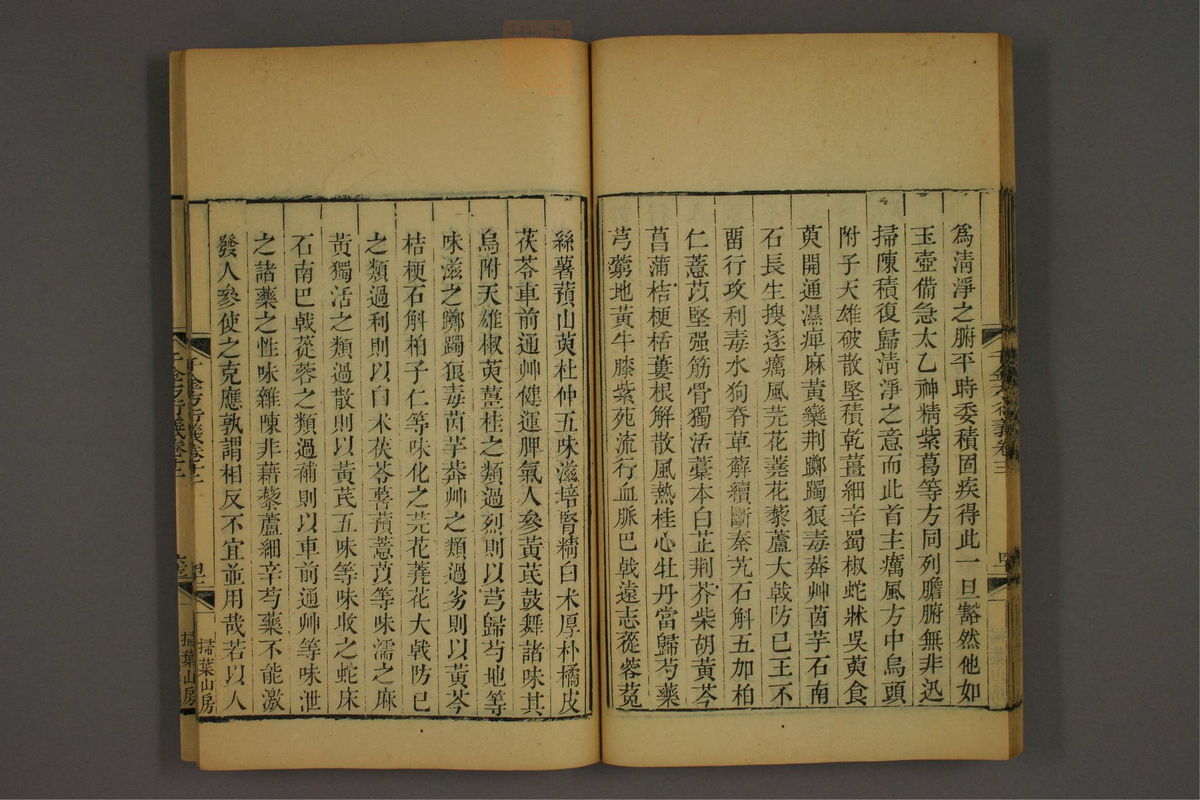 爲清淨之腑平時委積固疾得此一旦豁然他如
玉壺備急太乙神精紫葛等方同列膽腑無非迅
掃陳積復歸淸淨之意而此首主癘風方中烏頭
附子天雄破散堅積乾薑細辛蜀椒蛇牀吳萸食
萸開通濕痺麻黃欒荆躑躅狼毒莽艸茵芋石南
石長生搜逐癘風芫花蕘花藜蘆大戟防已王不
畱行攻利毒水狗脊萆薢續斷秦艽石斛五加柏
仁薏苡堅强筋骨獨活藁本白芷荆芥柴胡黃芩
菖蒲桔梗栝蔞根解散風熱桂心牡丹當歸芍藥
芎藭地黃牛膝紫苑流行血脈巴戟遠志蓯蓉菟
絲薯蕷山萸杜仲五味滋培腎精白术厚朴橘皮
茯苓車前通艸健運脾氣人參黃芪鼓舞諸味其
烏附天雄椒萸薑桂之類過烈則以芎歸芍地等
味滋之躑躅狼毒茵芋莽艸之類過劣則以黃芩
桔梗石斛柏子仁等味化之芫花蕘花大戟防已
之類過利則以白术茯苓薯蕷薏苡等味濡之麻
黃獨活之類過散則以黃芪五味等味收之蛇床
石南巴戟蓯蓉之類過補則以車前通艸等味泄
之諸藥之性味雜陳非藉藜蘆細辛芍藥不能激
發人參使之克應孰謂相反不宜並用哉若以人
千金方衍義卷十二
掃葉山房